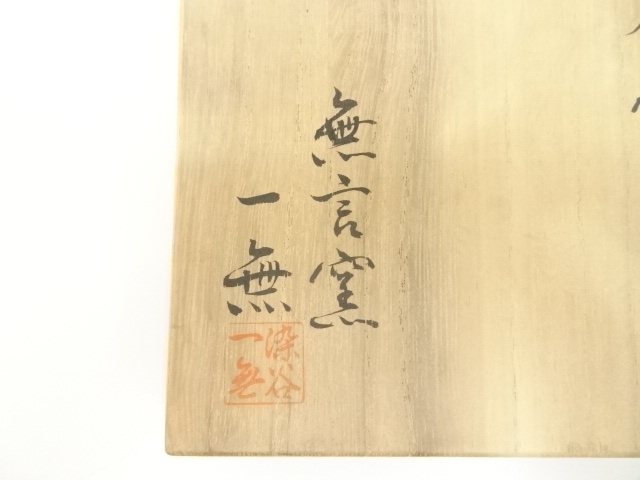 無言窯
一無
染谷
一無